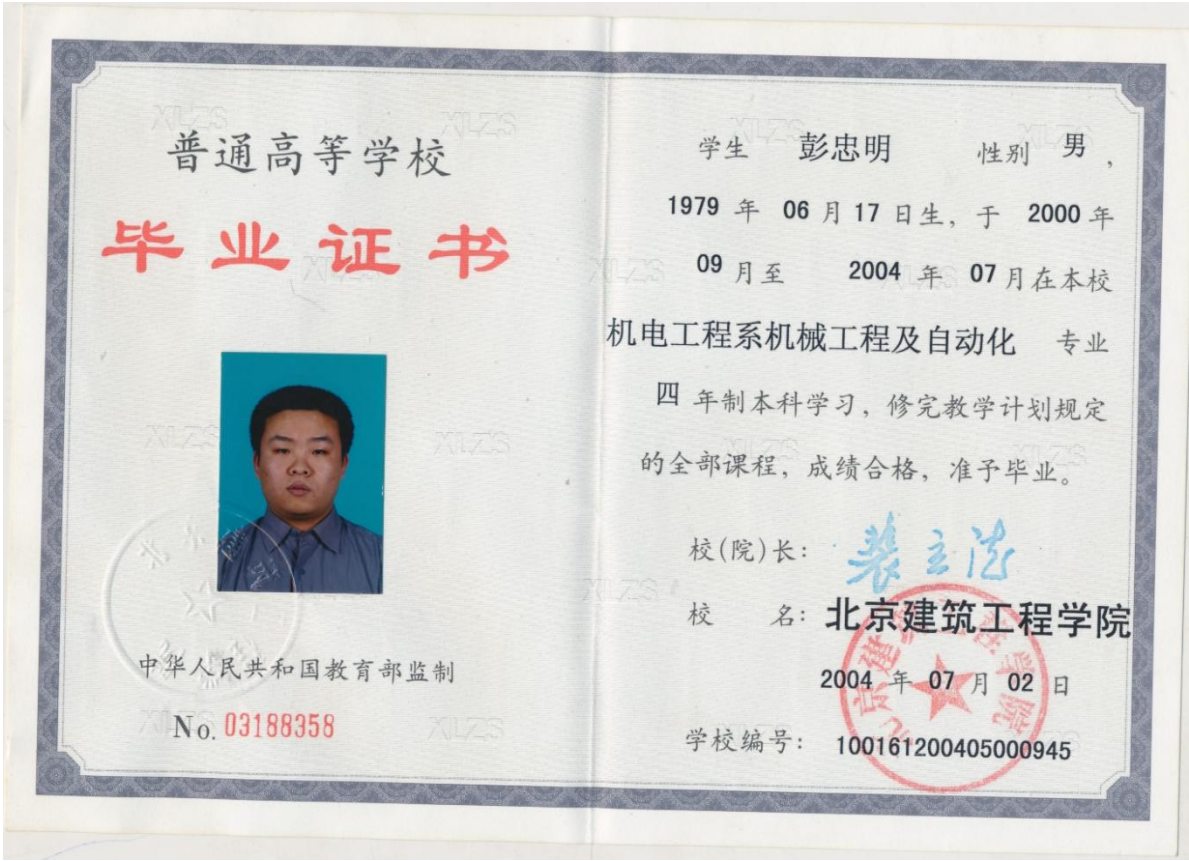 普通高等学校
毕业证书
中华人民共和国教育部监制
No. 03188358
学生 彭忠明 性别 男，
1979 年 06 月 17 日生，于 2000 年
09 月至 2004 年 07 月在本校
机电工程系机械工程及自动化 专业
四 年制本科学习，修完教学计划规定
的全部课程，成绩合格，准予毕业。
校(院)长：
校 名：北京建筑工程学院
2004 年 07 月 02 日
学校编号： 100161200405000945
北京建筑工程学院
XLZS